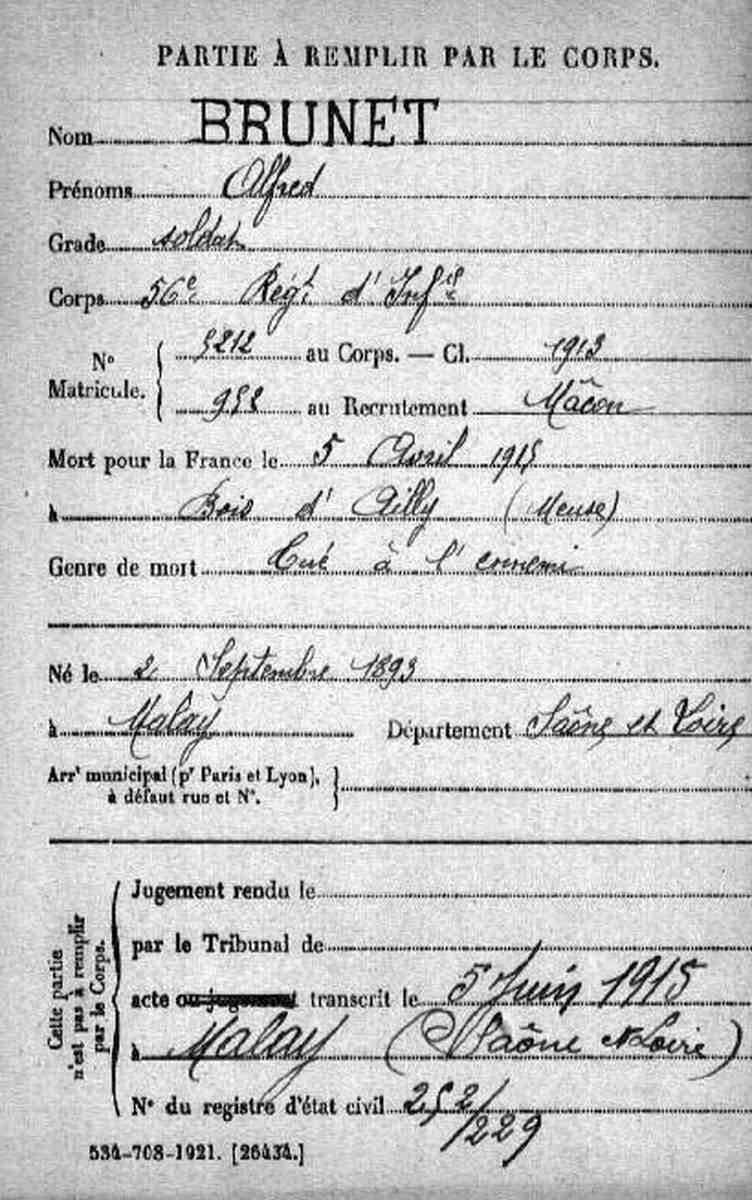 PARTIE À REMPLIR PAR LE CORPS.
Nom BRUNET
Prénoms Alfred
Grade soldat
Corps 56e Régt d' Infie
No Matricule. 5212 au Corps. — Cl. 1913
958 au Recrutement Mâcon
Mort pour la France le 5 Avril 1915
à Bois d' Ailly (Meuse)
Genre de mort Tué à l' ennemi
Né le 2 Septembre 1893
à Malay Département Saône et Loire
Arrt municipal (pr Paris et Lyon),
à défaut rue et No.
Cette partie n'est pas à remplir par le Corps.
Jugement rendu le
par le Tribunal de
acte ou jugement transcrit le 5 Juin 1915
à Malay (Saône et Loire)
No du registre d'état civil 252/229
534-708-1921. [26434.]